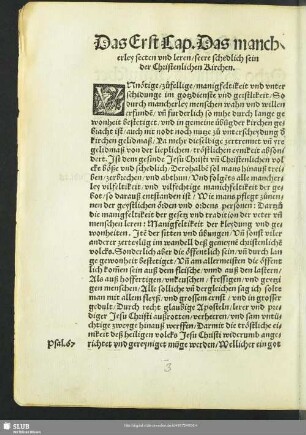 Das Erst Cap. Das manch-
erley secten vnd leren/ seere schedlich sein
der Christenlichen Kirchen.
VNnötige/ zůfellige/ manigfeltikeit vnd vnter
schidunge im gotzdienste vnd geistlikeit/ So
durch mancherley menschen wahn vnd willen
erfunde/ vñ fürderlich so mihe durch lange ge
wonheit bestetiget, vnd in gemeine übūg der kirchen ge-
bracht ist/ auch nit nodt noch nutz zů vnterscheydung ð
kirchen gelidmaß. Ja meher dieselbige
gelidmaß von der lieplichen/ tröstlichen einikeit absön-
dert. Ist dem gesinde Jesu Christi vñ Christenlichen vol
ckt böße vnd schedlich/ Derohalbē sol mans hinauß trei
ben/ zerbrechen/ vnd abethun/ Vnd folgēts alle mancher
ley vilfeltikeit/ vnd vilfechtige manichfeltikeit der gei-
ster/ so darauß entstanden ist/ Wie mann pfligt zůnen-
nen der geistlichen örden vnd obens personen: Darzů
die manigfeltikeit der gesetz vnd tradition der veter vñ
menschen leren: Manigfeltikeit der kleydung vnd ge-
wonheiten. Ité der sitten vnd übungen/ Vñ sonst viler
anderer im wandell deß gemeynē christenlichē
volcks. Sonderlich aber die öffentlich sein/ vñ durch lan
ge gewonheit bestetiget/ Vñ am allermeisten die öffent
lich komēn sein auß dem fleische/ vnnd auß den lastern/
Als auß hoffertigen/ vnkeuschen/ fressigen/ vnd geytzi-
gen menschen/ Alle söllche vñ dergleichen sag ich solte
man mit allem fleyß/ vnd grossem ernst/ vnd in grosser
gedult/ Durch recht glaubige Aposteln/ lerer vnd pre-
diger Jesu Christi außrotten/ verherren/ vnd sam vntü-
chtige zwerge hinauß werffen/ Darmit die tröstliche ei-
nikeit deß heiligen volcks Jesu Christi widerumb anges
Psal.67 richtet vnd gereyniget müge werden/ Wellicher ein got
3
SLUB